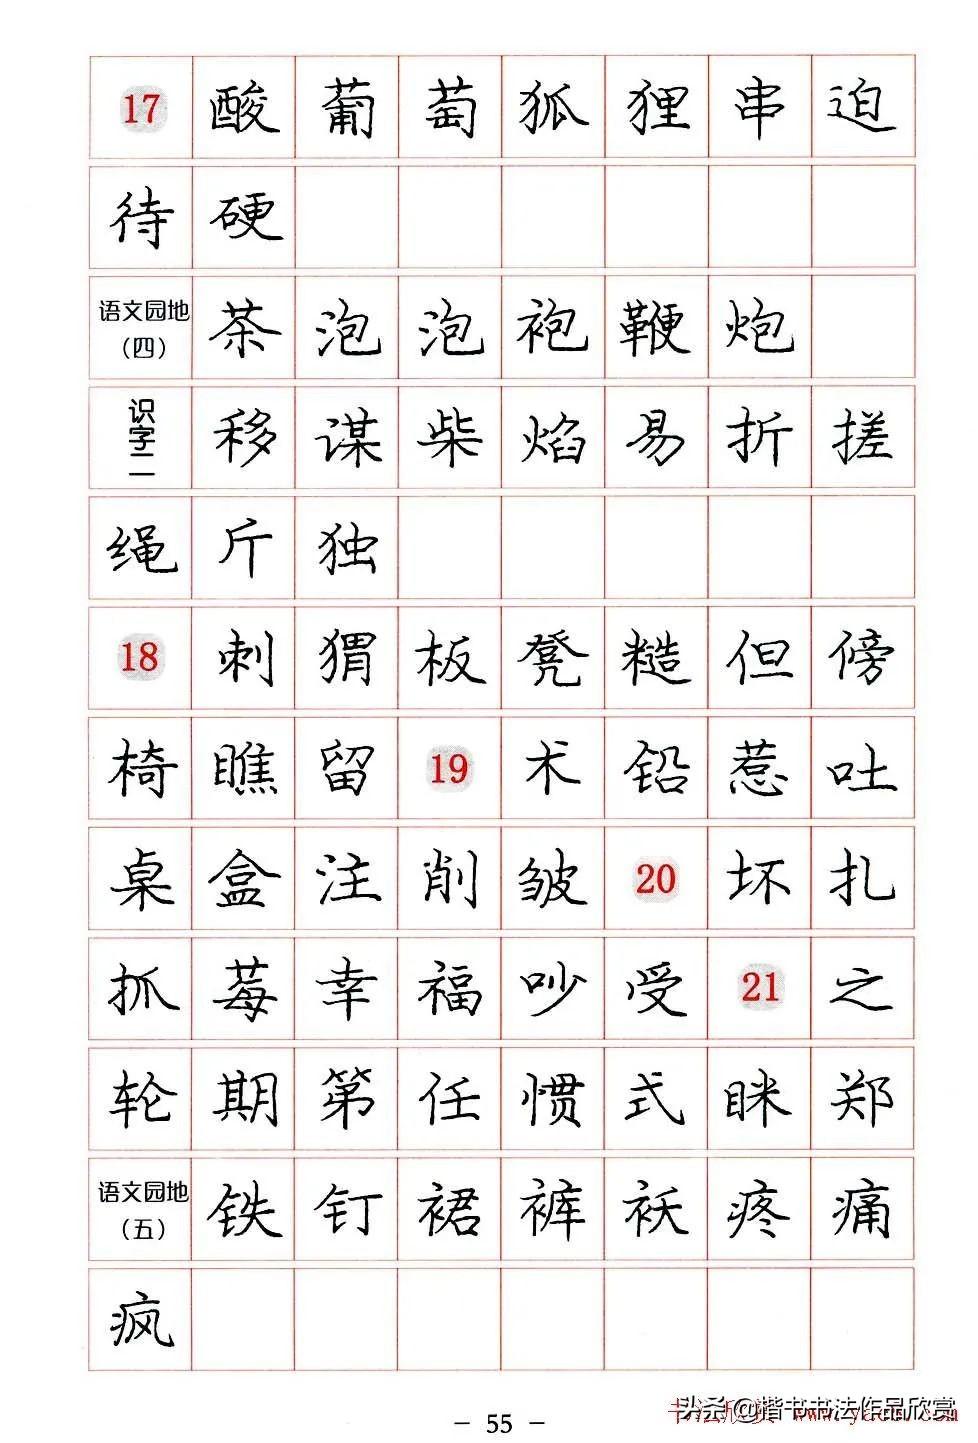 17 酸 葡 萄 狐 狸 串 迫
待 硬
语文园地(四) 茶 泡 泡 袍 鞭 炮
识字二 移 谋 柴 焰 易 折 搓
绳 斤 独
18 刺 猬 板 凳 糙 但 傍
椅 瞧 留 19 术 铅 惹 吐
桌 盒 注 削 皱 20 坏 扎
抓 莓 幸 福 吵 受 21 之
轮 期 第 任 惯 式 眯 郑
语文园地(五) 铁 钉 裙 裤 袄 疼 痛
疯
- 55 -
头条@楷书书法作品欣赏